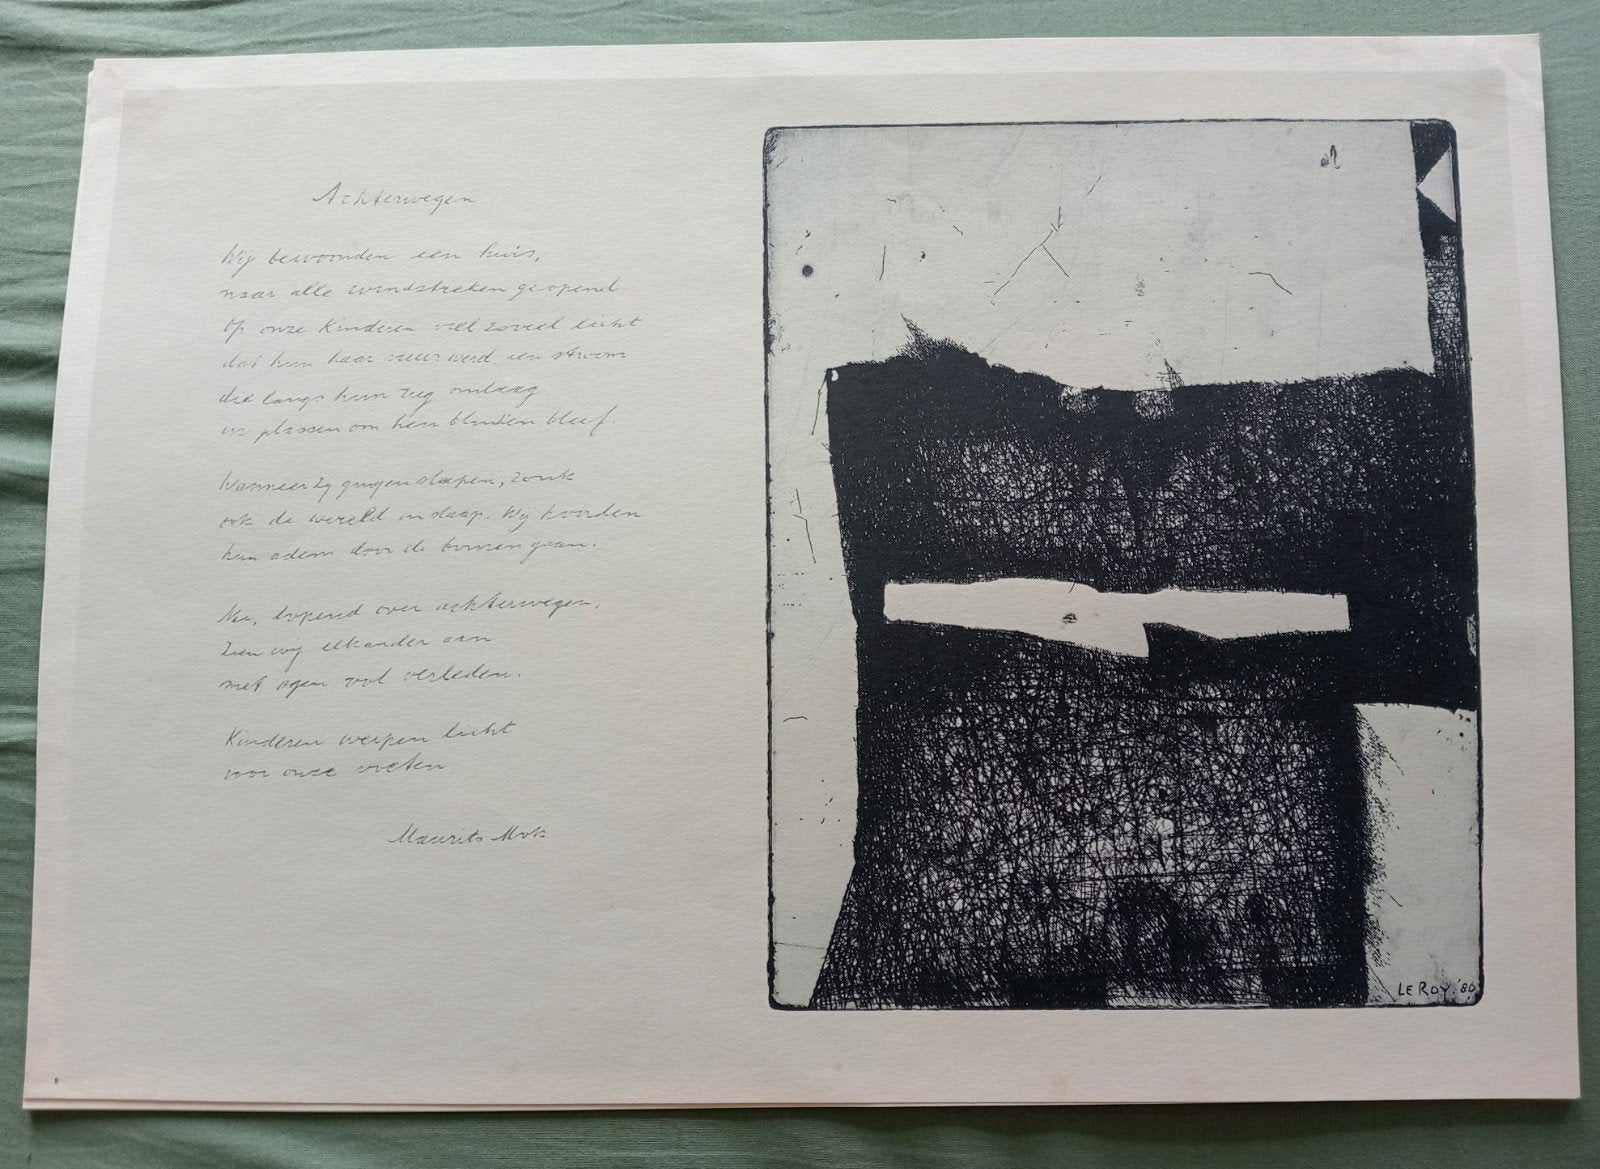 Achterwegen
Wij bewoonden een huis,
naar alle windstreken geopend
Op onze kinderen viel zoveel licht
dat hun haar weer werd een stroom
die langs hun rug omlaag
in plassen om hen blinken bleef.
Wanneer zij gingen slapen, zonk
ook de wereld in slaap. Wij hoorden
hun adem door de bomen gaan.
Nu, lopend over achterwegen,
zien wij elkander aan
met ogen vol verleden.
Kinderen werpen licht
voor onze voeten
Maurits Mok
LE ROY. '80
8